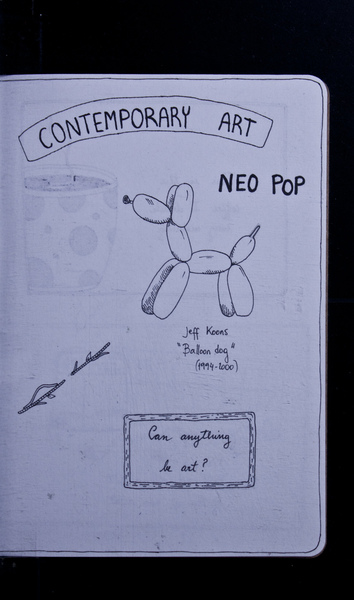 CONTEMPORARY ART
NEO POP
Jeff Koons
"Balloon dog"
(1994-2000)
Can anything
be art?